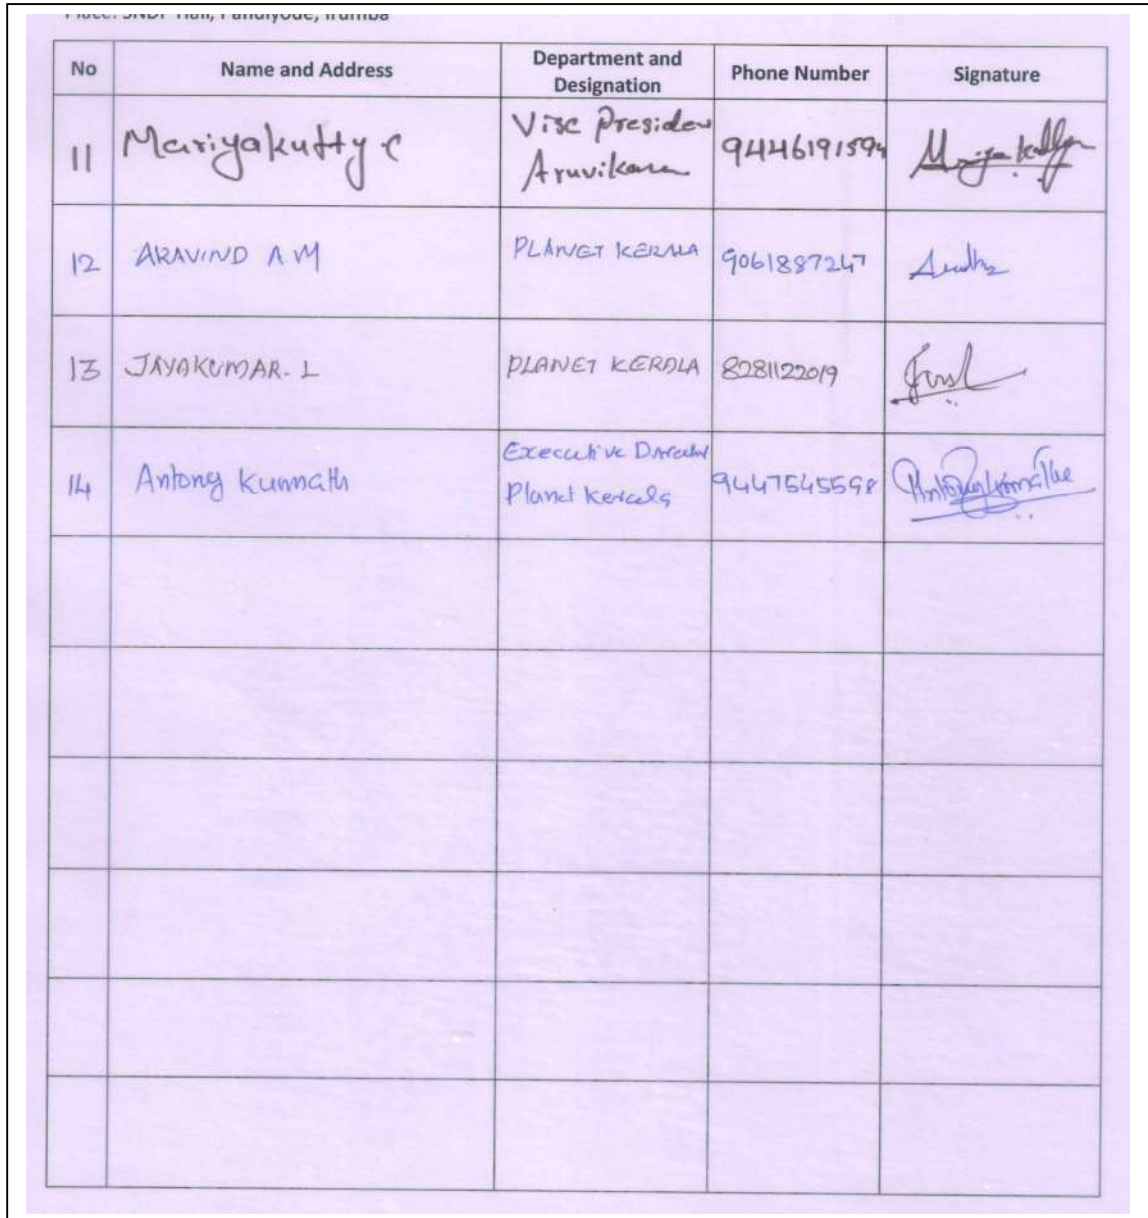 Place: SNDP Hall, Pandiyode, Irumba
No Name and Address Department and Designation Phone Number Signature
11 Mariyakutty C Vise President Aruvikara 9446191594 Mariyakutty
12 ARAVIND A M PLANET KERALA 9061887247
13 JAYAKUMAR. L PLANET KERALA 8281122019
14 Antony Kunnath Executive Director Planet Kerala 9447545598 Antony Kunnathe